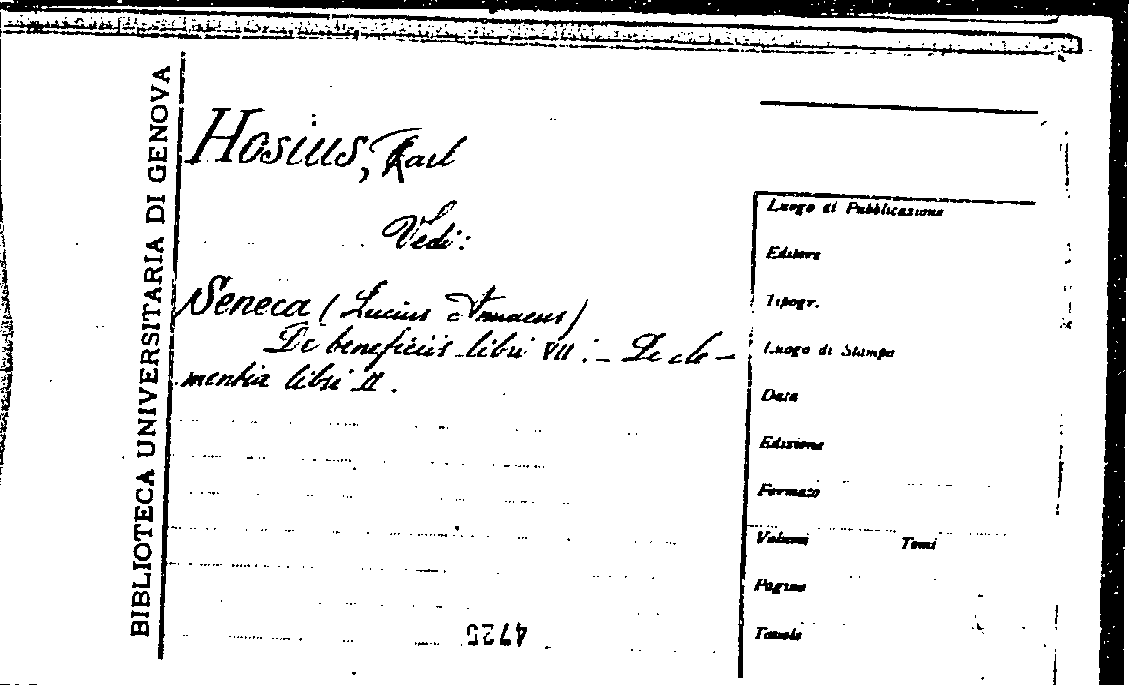 BIBLIOTECA UNIVERSITARIA DI GENOVA
Hosius, Karl
Vedi:
Seneca (Lucius Annaeus)
De beneficiis libri VII: - De cle-
mentia libri II.
4725
Luogo di Pubblicazione
Editore
Tipogr.
Luogo di Stampa
Data
Edizione
Formato
Volumi Tomi
Pagine
Tavole